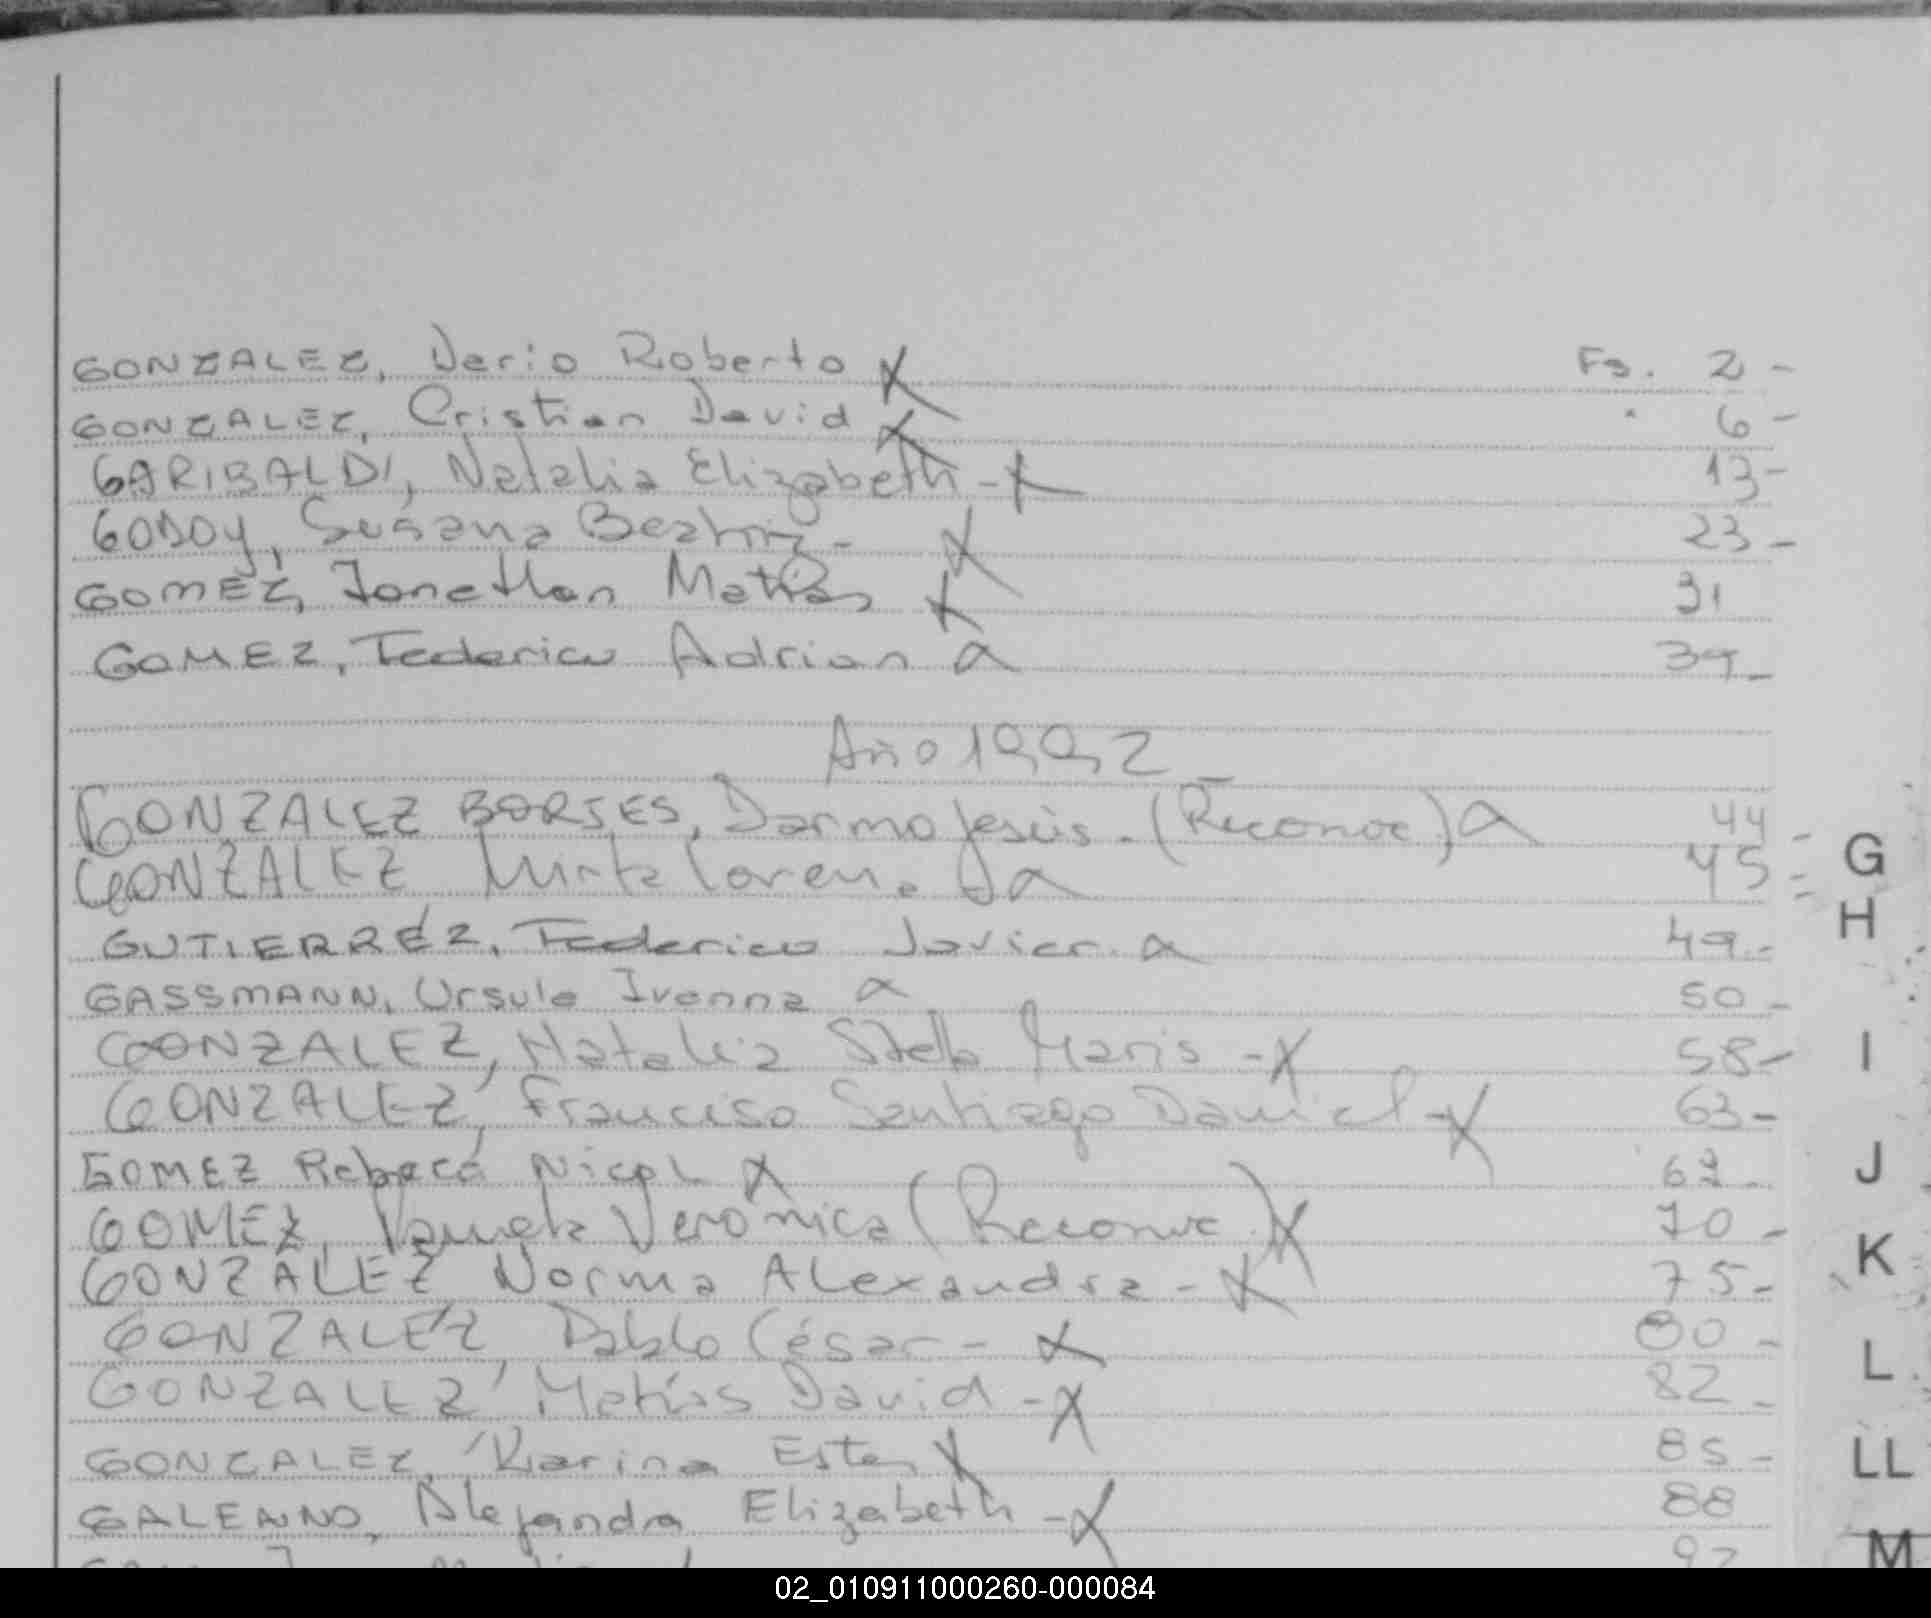 GONZALEZ, Dario Roberto X Fs. 2 -
GONZALEZ, Cristian David X " 6 -
GARIBALDI, Natalia Elizabeth - X 13 -
GODOY, Susana Beatriz - X 23 -
GOMEZ, Jonathan Matías X 31
GOMEZ, Federico Adrian a 39 -
Año 1992 -
GONZALEZ BORGES, Darmo Jesús - (Reconoc.) a 44 -
GONZALEZ Mirta Lorena a 45 -
GUTIERREZ, Federico Javier. a 49 -
GASSMANN, Ursula Ivonne a 50 -
GONZALEZ, Natalia Stella Maris - X 58 -
GONZALEZ, Francisco Santiago Daniel - X 63 -
GOMEZ Rebeca Nicol X -
GOMEZ, Pamela Verónica (Reconoc.) X 70 -
GONZALEZ Norma Alexandra - X 75 -
GONZALEZ, Pablo César - X 80 -
GONZALEZ, Matías David - X 82 -
GONZALEZ, Karina Ester X 85 -
GALEANO, Alejandra Elizabeth - X 88
G
H
I
J
K
L
LL
M
02_010911000260-000084